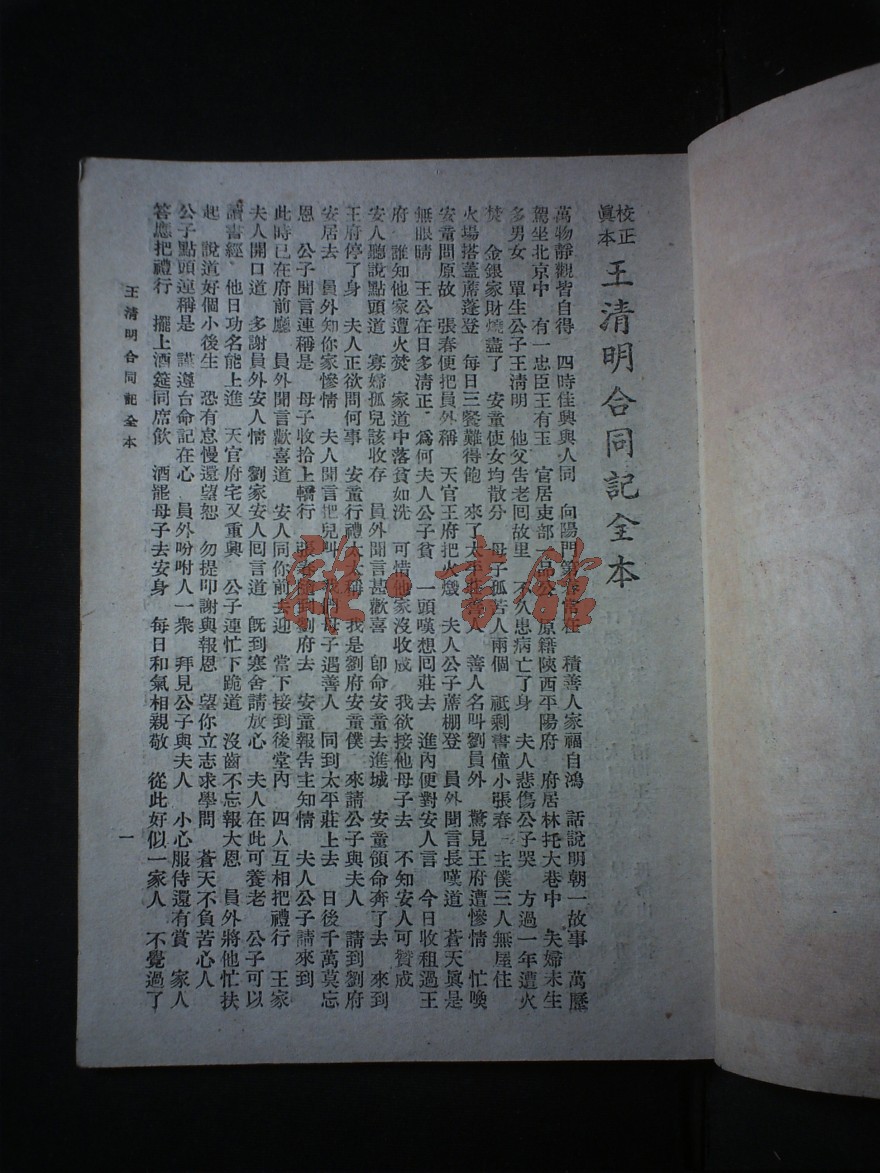 校正
眞本
王清明合同記全本
萬物靜觀皆自得 四時佳興與人同 向陽門第春常在 積善人家福自鴻 話說明朝一故事 萬歷
駕坐北京中 有一忠臣王有玉 官居吏部一品公 原籍陝西平陽府 府居林托大巷中 夫婦未生
多男女 單生公子王清明 他父告老囘故里 不久患病亡了身 夫人悲傷公子哭 方過一年遭火
焚 金銀家財燒盡了 安童使女均散分 母子孤苦人兩個 祇剩書僮小張春 主僕三人無屋住
火塲搭蓋蓆蓬登 每日三餐難得飽 來了太平莊善人 善人名叫劉員外 驚見王府遭慘情 忙喚
安童問原故 張春便把員外稱 天官王府把火燬 夫人公子蓆棚登 員外聞言長嘆道 蒼天眞是
無眼睛 王公在日多清正 爲何夫人公子貧 一頭嘆想回莊去 進內便對安人言 今日收租過王
府 誰知他家遭火焚 家道中落貧如洗 可惜他家沒收成 我欲接他母子去 不知安人可贊成
安人聽說點頭道 寡婦孤兒該收存 員外聞言甚歡喜 卽命安童去進城 安童領命奔了去 來到
王府停了身 夫人正欲問何事 安童行禮太太稱 我是劉府安童僕 來請公子與夫人 請到劉府
安居去 員外知你家慘情 夫人聞言把兒叫 我們母子遇善人 同到太平莊上去 日後千萬莫忘
恩 公子聞言連稱是 母子收拾上轎行 張春隨到劉府去 安童報吿主知情 夫人公子請來到
此時已在府前廳 員外聞言歡喜道 安人同你前去迎 當下接到後堂內 四人互相把禮行 王家
夫人開口道 多謝員外安人情 劉家安人囘言道 旣到寒舍請放心 夫人在此可養老 公子可以
讀書經 他日功名能上進 天官府宅又重興 公子連忙下跪道 沒齒不忘報大恩 員外將他忙扶
起 說道好個小後生 恐有怠慢還望恕 勿提叩謝與報恩 望你立志求學問 蒼天不負苦心人
公子點頭連稱是 謹遵台命記在心 員外吩咐人一衆 拜見公子與夫人 小心服侍還有賞 家人
答應把禮行 擺上酒筵同席飲 酒罷母子去安身 每日和氣相親敬 從此好似一家人 不覺過了
王清明合同記全本
一